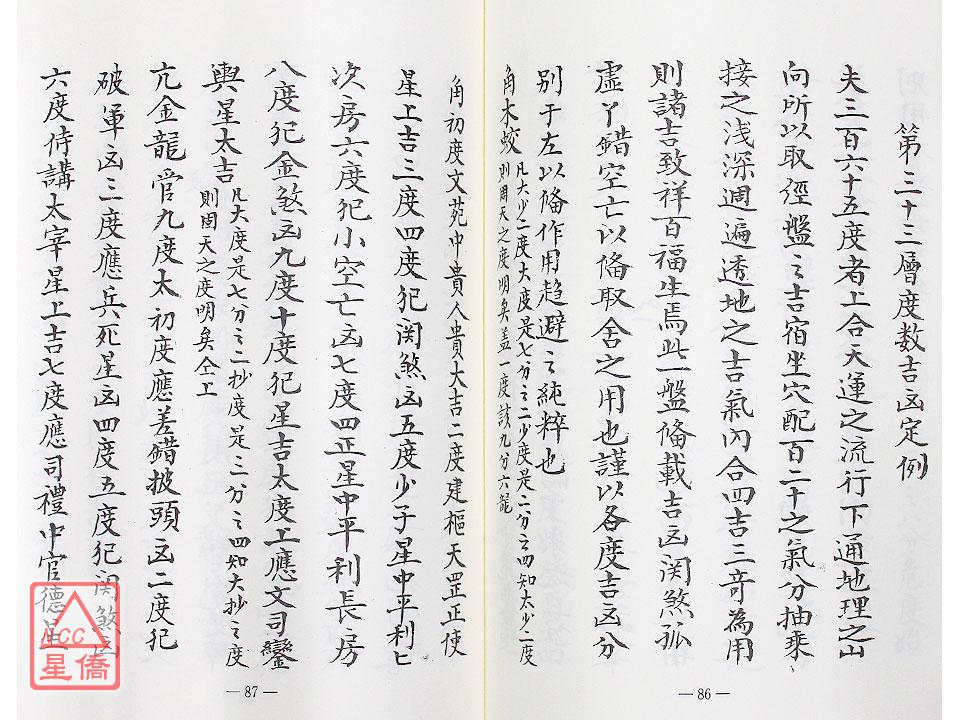 第三十三層度数吉凶定例
夫三百六十五度者上合天運之流行下通地理之山
向所以取經盤之吉宿坐穴配百二十之氣分抽乘
接之浅深週遍透地之吉氣內合四吉三奇為用
則諸吉致祥百福生焉此一盤俻載吉凶関煞孤
虛丫錯空亡以俻取舍之用也謹以各度吉凶分
別于左以俻作用趋避之純粹也
角木蛟凡大少二度大度是七分之二少度是二分之四知太少二度
則周天之度明矣盖一度該九分六龍
— 86 —
角初度文苑中貴人貴大吉二度建樞天罡正使
星上吉三度四度犯関煞凶五度少子星中平利匕
次房六度犯小空亡凶七度四正星中平利長房
八度犯金煞凶九度十度犯星吉太度工應文司鑾
輿星太吉凡大度是七分之二抄度是三分之四知大抄之度
則周天之度明矣仝工
亢金龍管九度太初度應差錯披頭凶二度犯
破軍凶三度應兵死星凶四度五度犯関煞凶
六度侍講太宰星上吉七度應司禮中官德星
— 87 —
NCC
星僑